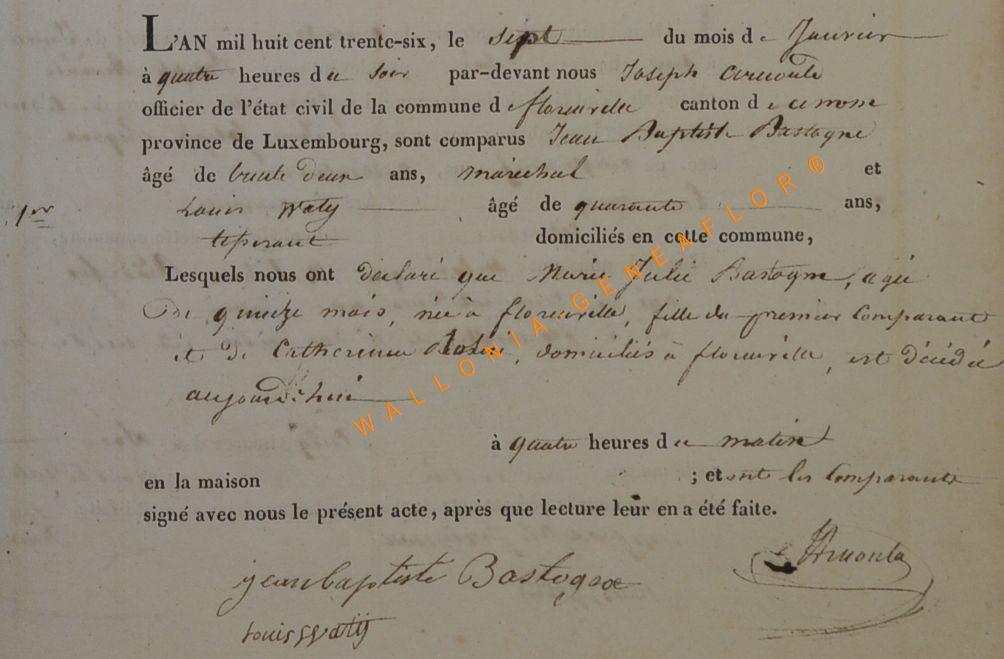 L'AN mil huit cent trente-six, le sept du mois de Janvier
à quatre heures du soir par-devant nous Joseph Arnould
officier de l'état civil de la commune de florenville canton de
province de Luxembourg, sont comparus Jean Baptiste Bastogne
âgé de trente deux ans, maréchal et
1er
Louis Waty âgé de quarante ans,
tisserant domiciliés en cette commune,
Lesquels nous ont déclaré que Marie Julie Bastogne, agée
De quinze mois, née à florenville, fille du premier Comparant
et De Catherine, domiciliés à florenville, est décédée
aujourd'hui
à quatre heures du matin
en la maison ; et ont les Comparants
signé avec nous le présent acte, après que lecture leur en a été faite.
jean baptiste Bastogne
Louis Waty
WALLONIA-GENEAFLOR®